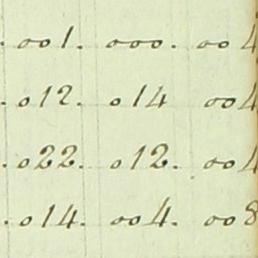 . 001. 000. 004
. 012. 014 004
. 022. 012. 004
. 014. 004. 008